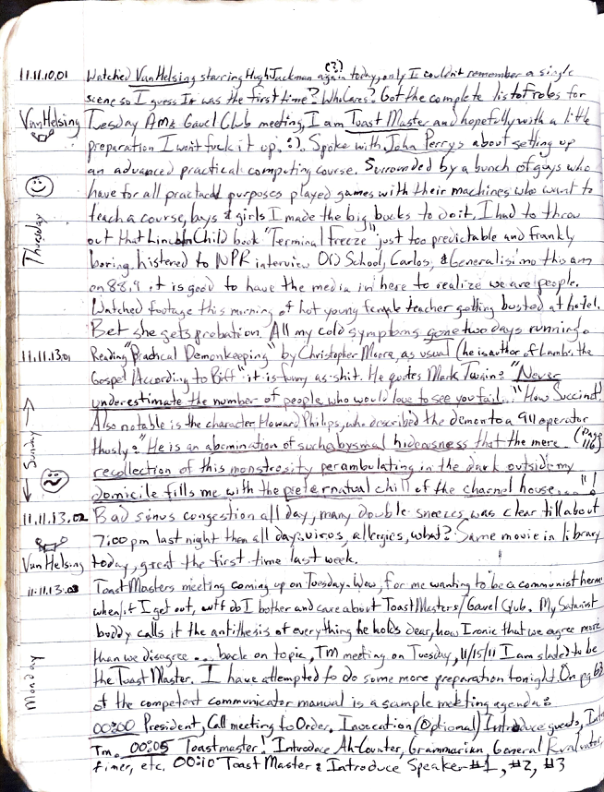 11.11.10.01 Watched Van Helsing starring Hugh Jackman again (?) today, only I couldn't remember a single
scene so I guess It was the first time? Who Cares? Got the complete list of roles for
Van Helsing Tuesday AMs Gavel Club meeting, I am Toast Master and hopefully with a little
preparation I won't fuck it up. :). Spoke with John Perrys about setting up
an advanced practical computing course. Surrounded by a bunch of guys who
have for all practical purposes played games with their machines who want to
teach a course, boys & girls I made the big bucks to do it. I had to throw
Thursday out that Lincoln Child book "Terminal Freeze" just too predictable and frankly
boring. Listened to NPR interview Old School, Carlos, & Generalisimo this am
on 88.9, it is good to have the media in here to realize we are people.
Watched footage this morning of hot young female teacher getting busted at hotel.
Bet she gets probation. All my cold symptoms gone two days running.
11.11.13.01 Reading "Practical Demonkeeping" by Christopher Moore, as usual (he is author of Lamb: the
Gospel According to Biff" it is funny as shit. He quotes Mark Twain: "Never
underestimate the number of people who would love to see you fail..." How Succinct!
Also notable is the character Howard Philips, who described the demon to a 911 operator
Sunday thusly: "He is an abomination of such abysmal hideousness that the mere (Page 116)
recollection of this monstrosity perambulating in the dark outside my
domicile fills me with the preternatual chill of the charnol house...."!
11.11.13.02 Bad sinus congestion all day, many double sneezes, was clear till about
7:00 pm last night then all day: virus, allergies, what? Same movie in library
Van Helsing today, great the first time last week.
11.11.13.03 Toast Masters meeting coming up on Tuesday. Wow, for me wanting to be a communist
when/if I get out, wtf do I bother and care about ToastMasters/Gavel Club. My Satanist
buddy calls it the antithesis of everything he holds dear, how Ironic that we agree more
than we disagree... back on topic, TM meeting on Tuesday, 11/15/11 I am slated to be
Monday the Toast Master. I have attempted to do some more preparation tonight. On pg 63
of the competent communicator manual is a sample meeting agenda:
00:00 President, Call meeting to Order. Invocation (Optional) Introduce guests,
Tm. 00:05 Toastmaster: Introduce Ah-Counter, Grammarian, General Evaluator
timer, etc. 00:10 Toast Master: Introduce Speaker #1, #2, #3